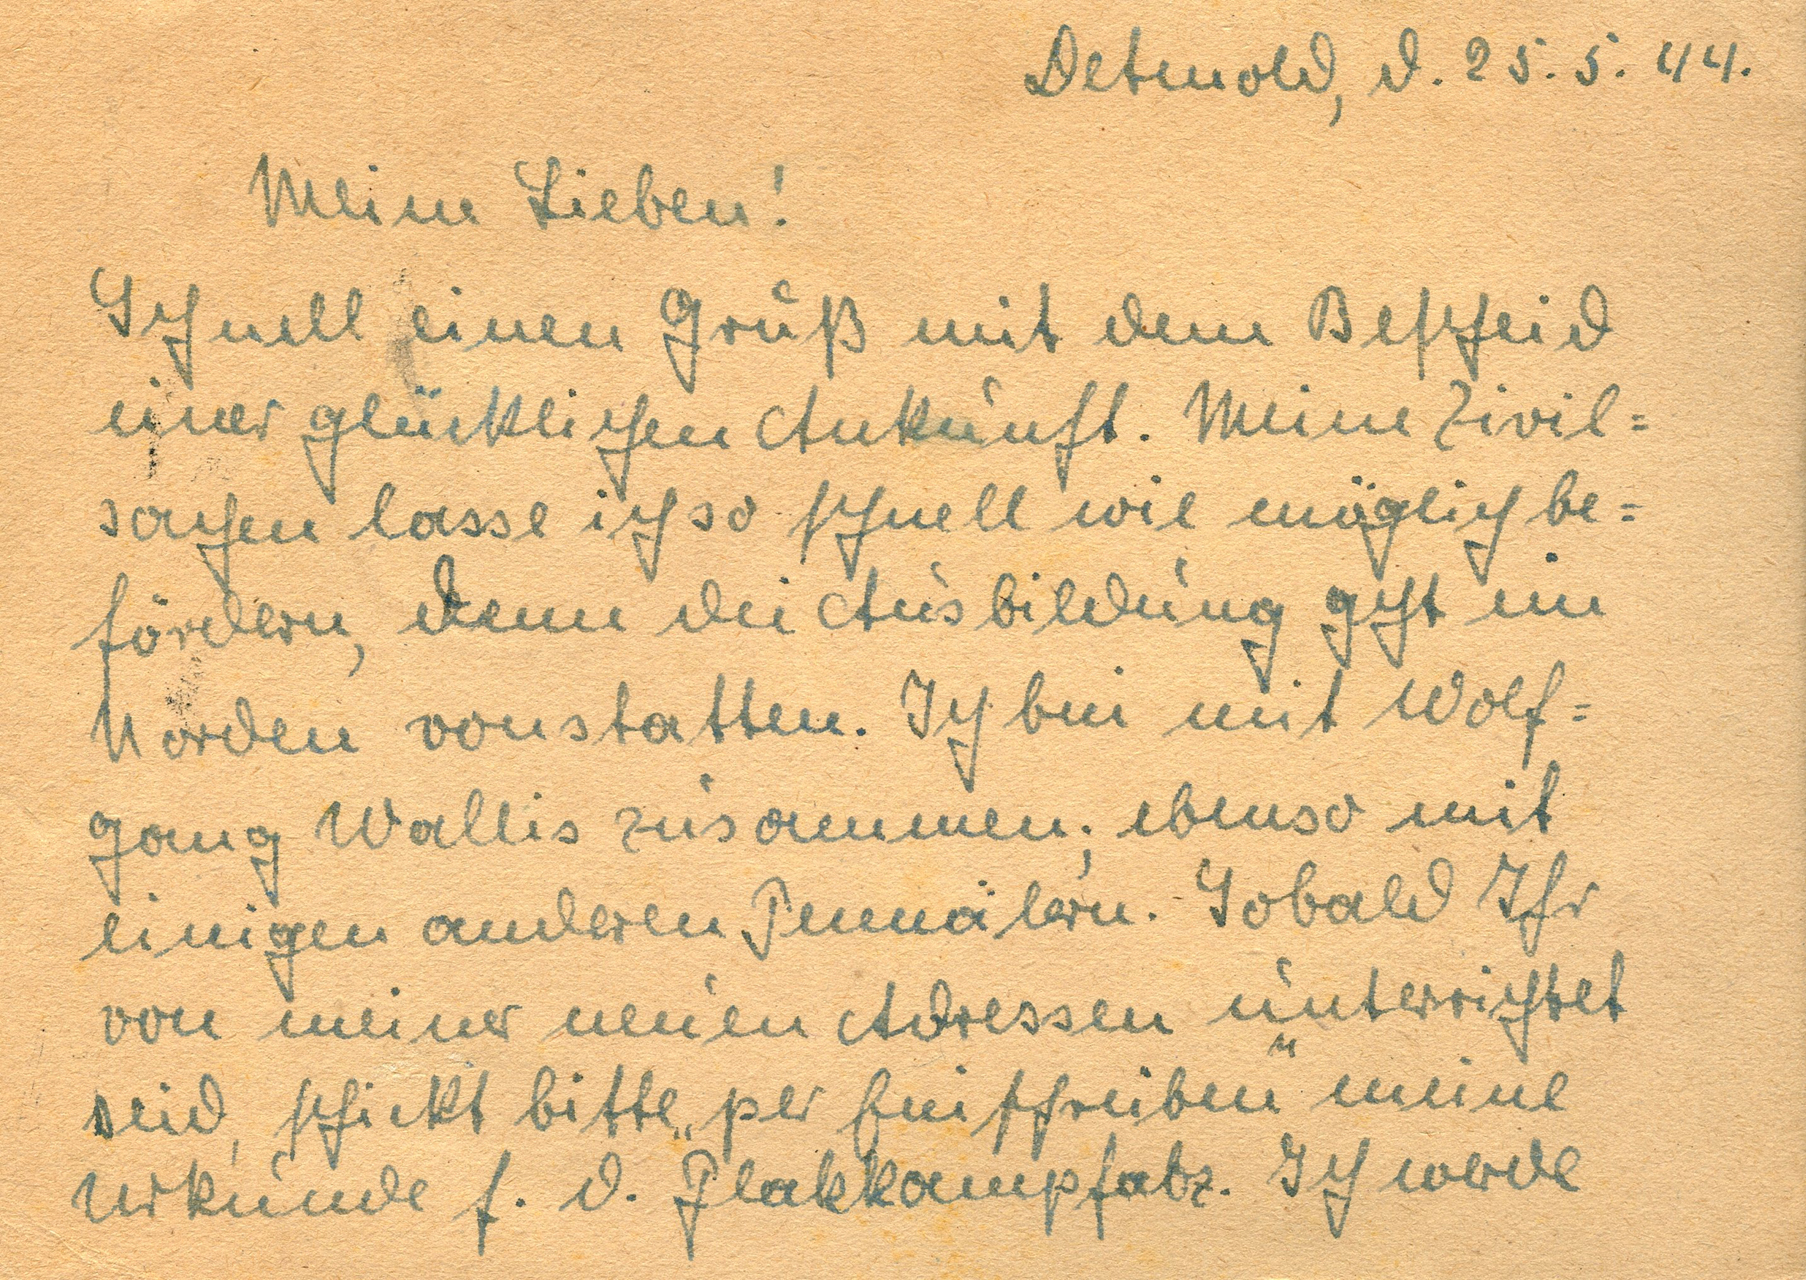 Detmold, d. 25. 5. 44.
Meine Lieben!
Schnell einen Gruß mit dem Bescheid
einer glücklichen Ankunft. Meine Zivil=
sachen lasse ich so schnell wie möglich be=
fördern, denn die Ausbildung geht im
Norden vonstatten. Ich bin mit Wolf=
gang Wallis zusammen; ebenso mit
einigen anderen Pennälern. Sobald Ihr
von meiner neuen Adressen unterrichtet
seid, schickt bitte „per Einschreiben“ meine
Urkunde f. d. Flakkampfabz. Ich werde